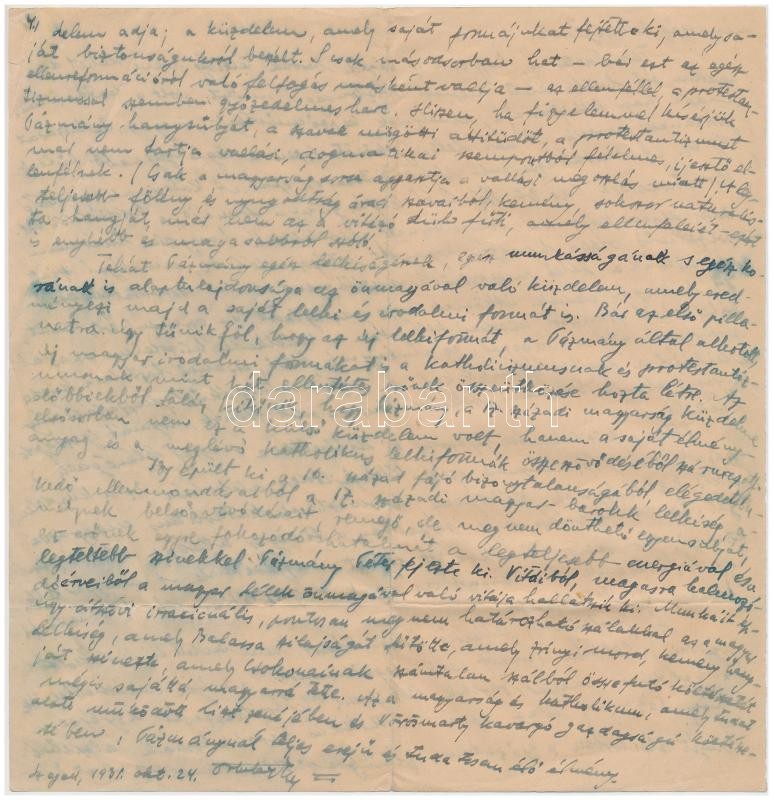 4.) delem adja; a küzdelem, amely saját formájukat fejtette ki, amely sa-
ját biztonságukról beszélt. S csak másodsorban hat – bár ezt az egész
ellenreformációról való felfogás másként vallja – az ellenféllel, a protestan-
tizmussal szemben győzedelmes harc. Hiszen, ha figyelemmel kísérjük
Pázmány hangsúlyát, a szavak mögötti attitűdöt, a protestantizmust
már nem tartja vallási, dogmatikai szempontból félelmes, ijesztő el-
lenfélnek. (Csak a magyarság sorsa aggasztja a vallási megoszlás miatt.) A leg-
teljesebb fölény és nyugodtság árad szavaiból, kemény, sokszor naturalis-
ta hangját már nem az a vittző düh fűti, amely ellenfeleiét – azért
is enyhébb és magasabbról szóló.
Tehát Pázmány egész lelkiségének, egész munkásságának s egész ko-
rának is alaptulajdonsága az önmagával való küzdelem, amely ered-
ményezi majd a saját lelki és irodalmi formát is. Bár az első pilla-
natra úgy tűnik föl, hogy az új lelkiformát, a Pázmány által alkotott
új magyar irodalmi formákat is a katholicizmusnak és protestantiz-
musnak mint két ellentétes erőnek összeütközése hozta létre. Az
előbbiekből talán kitűnik, hogy Pázmány, a 17. századi magyarság küzdelme
elsősorban nem ez a külső küzdelem volt, hanem a saját élmény-
anyag és a meglévő katholikus lelkiformák összeszövődéséből származott.
Így épült ki a 16. század fájó bizonytalanságából, elégedetlen-
kedő ellenmondásaiból a 17. századi magyar barokk lelkiség, a-
melynek belső vívódásait remegő, de meg nem dönthető egyensúlyát,
az erőnek egyre fokozódó hatalmát a legteljesebb energiával és a
legteltebb színekkel Pázmány Péter fejezte ki. Vitáiból, magasra halmozó-
dó érveiből a magyar lélek önmagával való vitája hallatszik ki. Munkáit ép-
úgy átszövi irracionális, pontosan meg nem határozható szálakkal az a magyar
lelkiség, amely Balassa szilajságát fűtötte, amely Zrínyi mord, kemény hang-
ját színezte, amely Csokonainak számtalan szálból összefutó költészetét
mégis sajáttá, magyarrá tette. Az a magyarság és katholikum, amely tudat
alatt működött Liszt zenéjében és Vörösmarty kavargó gazdagságú költésze-
tében, Pázmánynál teljes erejű és tudatosan élő élmény.
Szeged, 1931. okt. 24.
darabanth.com